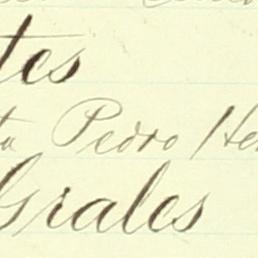 tes
ta Pedro He
Grales